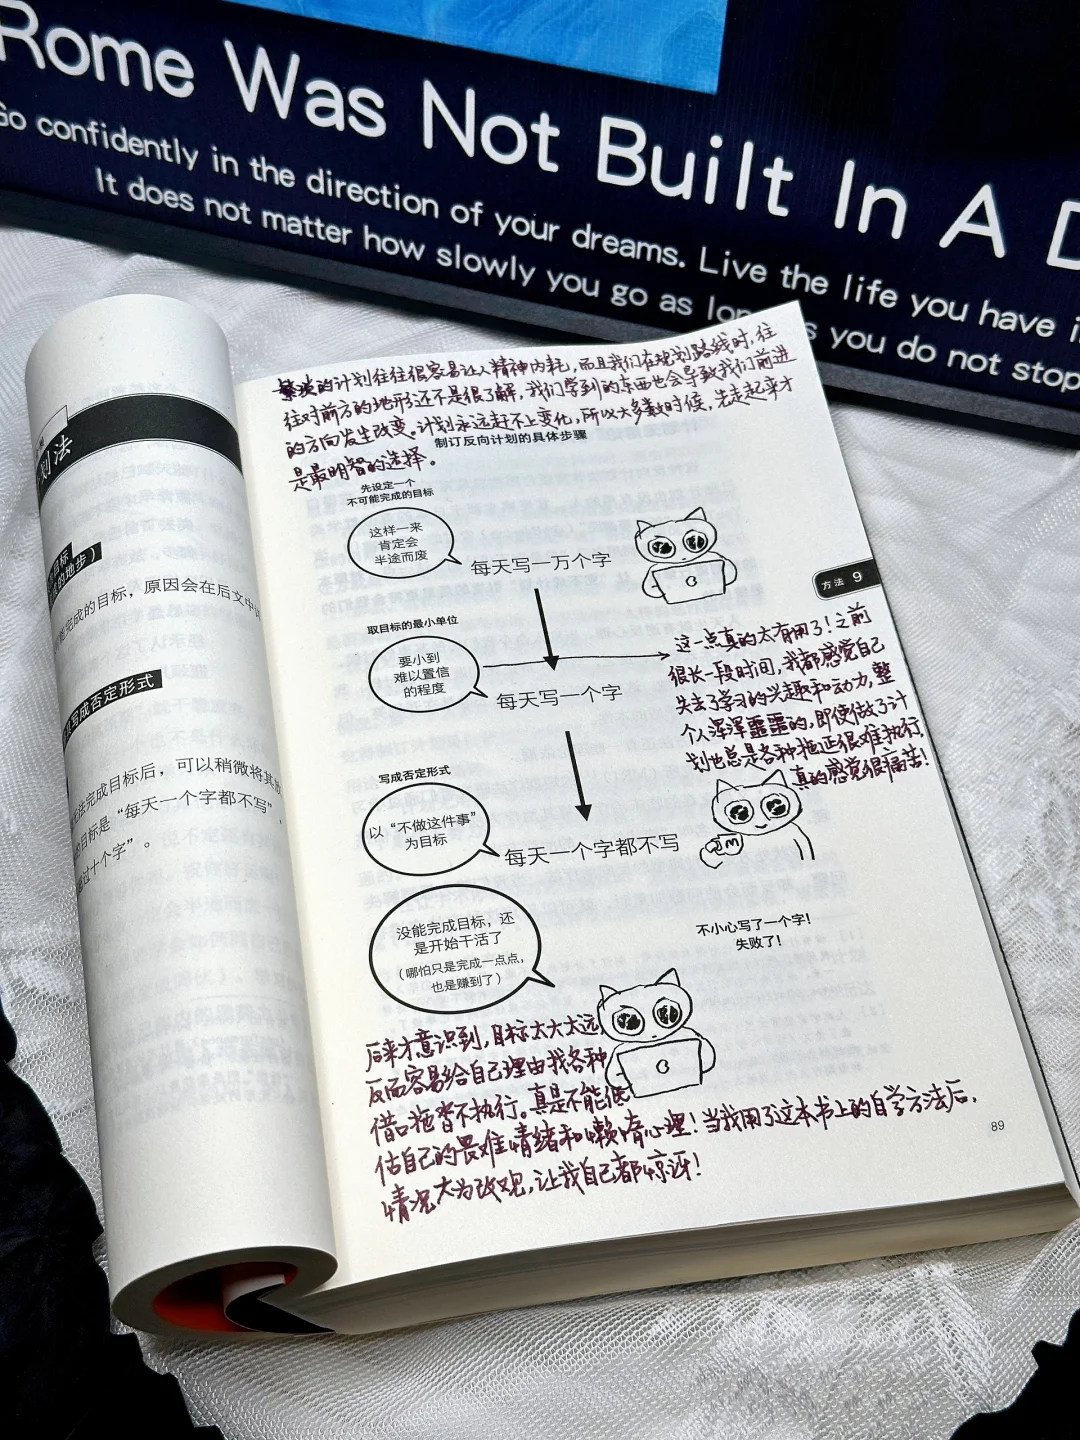 Rome Was Not Built In A D
Go confidently in the direction of your dreams. Live the life you have i
It does not matter how slowly you go as lon s you do not stop
划法
目标
的地步）
完成的目标，原因会在后文中
写成否定形式
无法完成目标后，可以稍微将其放
目标是“每天一个字都不写”，
超过十个字”。
的计划往往很容易让人精神内耗，而且我们在规划路线时，往
往对前方的地形还不是很了解，我们学到的东西也会导致我们前进
的方向发生改变。计划永远赶不上变化，所以大多数时候，先走起来才
是最明智的选择。
制订反向计划的具体步骤
先设定一个
不可能完成的目标
这样一来
肯定会
半途而废
每天写一万个字
方法 9
取目标的最小单位
要小到
难以置信
的程度
每天写一个字
这一点真的太有用了！之前
很长一段时间，我都感觉自己
失去了学习的兴趣和动力，整
个人浑浑噩噩的，即使做了计
划也总是各种拖延很难执行，
真的感觉很痛苦！
写成否定形式
以“不做这件事”
为目标
每天一个字都不写
没能完成目标，还
是开始干活了
（哪怕只是完成一点点，
也是赚到了）
不小心写了一个字！
失败了！
后来才意识到，目标太大太远，
反而容易给自己理由找各种
借口拖沓不执行。真是不能低
估自己的畏难情绪和懒惰心理！当我用了这本书上的自学方法后，
情况大为改观，让我自己都惊讶！
89